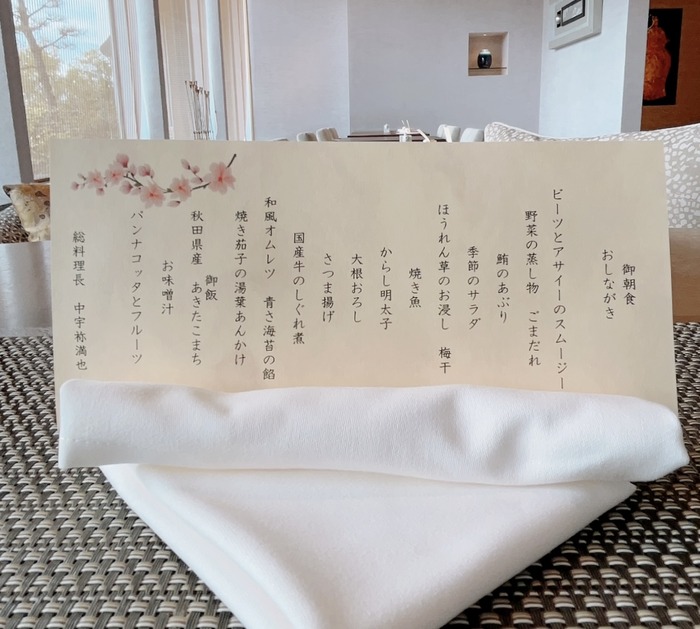 御朝食
おしながき
ビーツとアサイーのスムージー
野菜の蒸し物　ごまだれ
鮪のあぶり
季節のサラダ
ほうれん草のお浸し　梅干
焼き魚
からし明太子
大根おろし
さつま揚げ
国産牛のしぐれ煮
和風オムレツ　青さ海苔の餡
焼き茄子の湯葉あんかけ
御飯
秋田県産　あきたこまち
お味噌汁
パンナコッタとフルーツ
総料理長　中宇祢満也